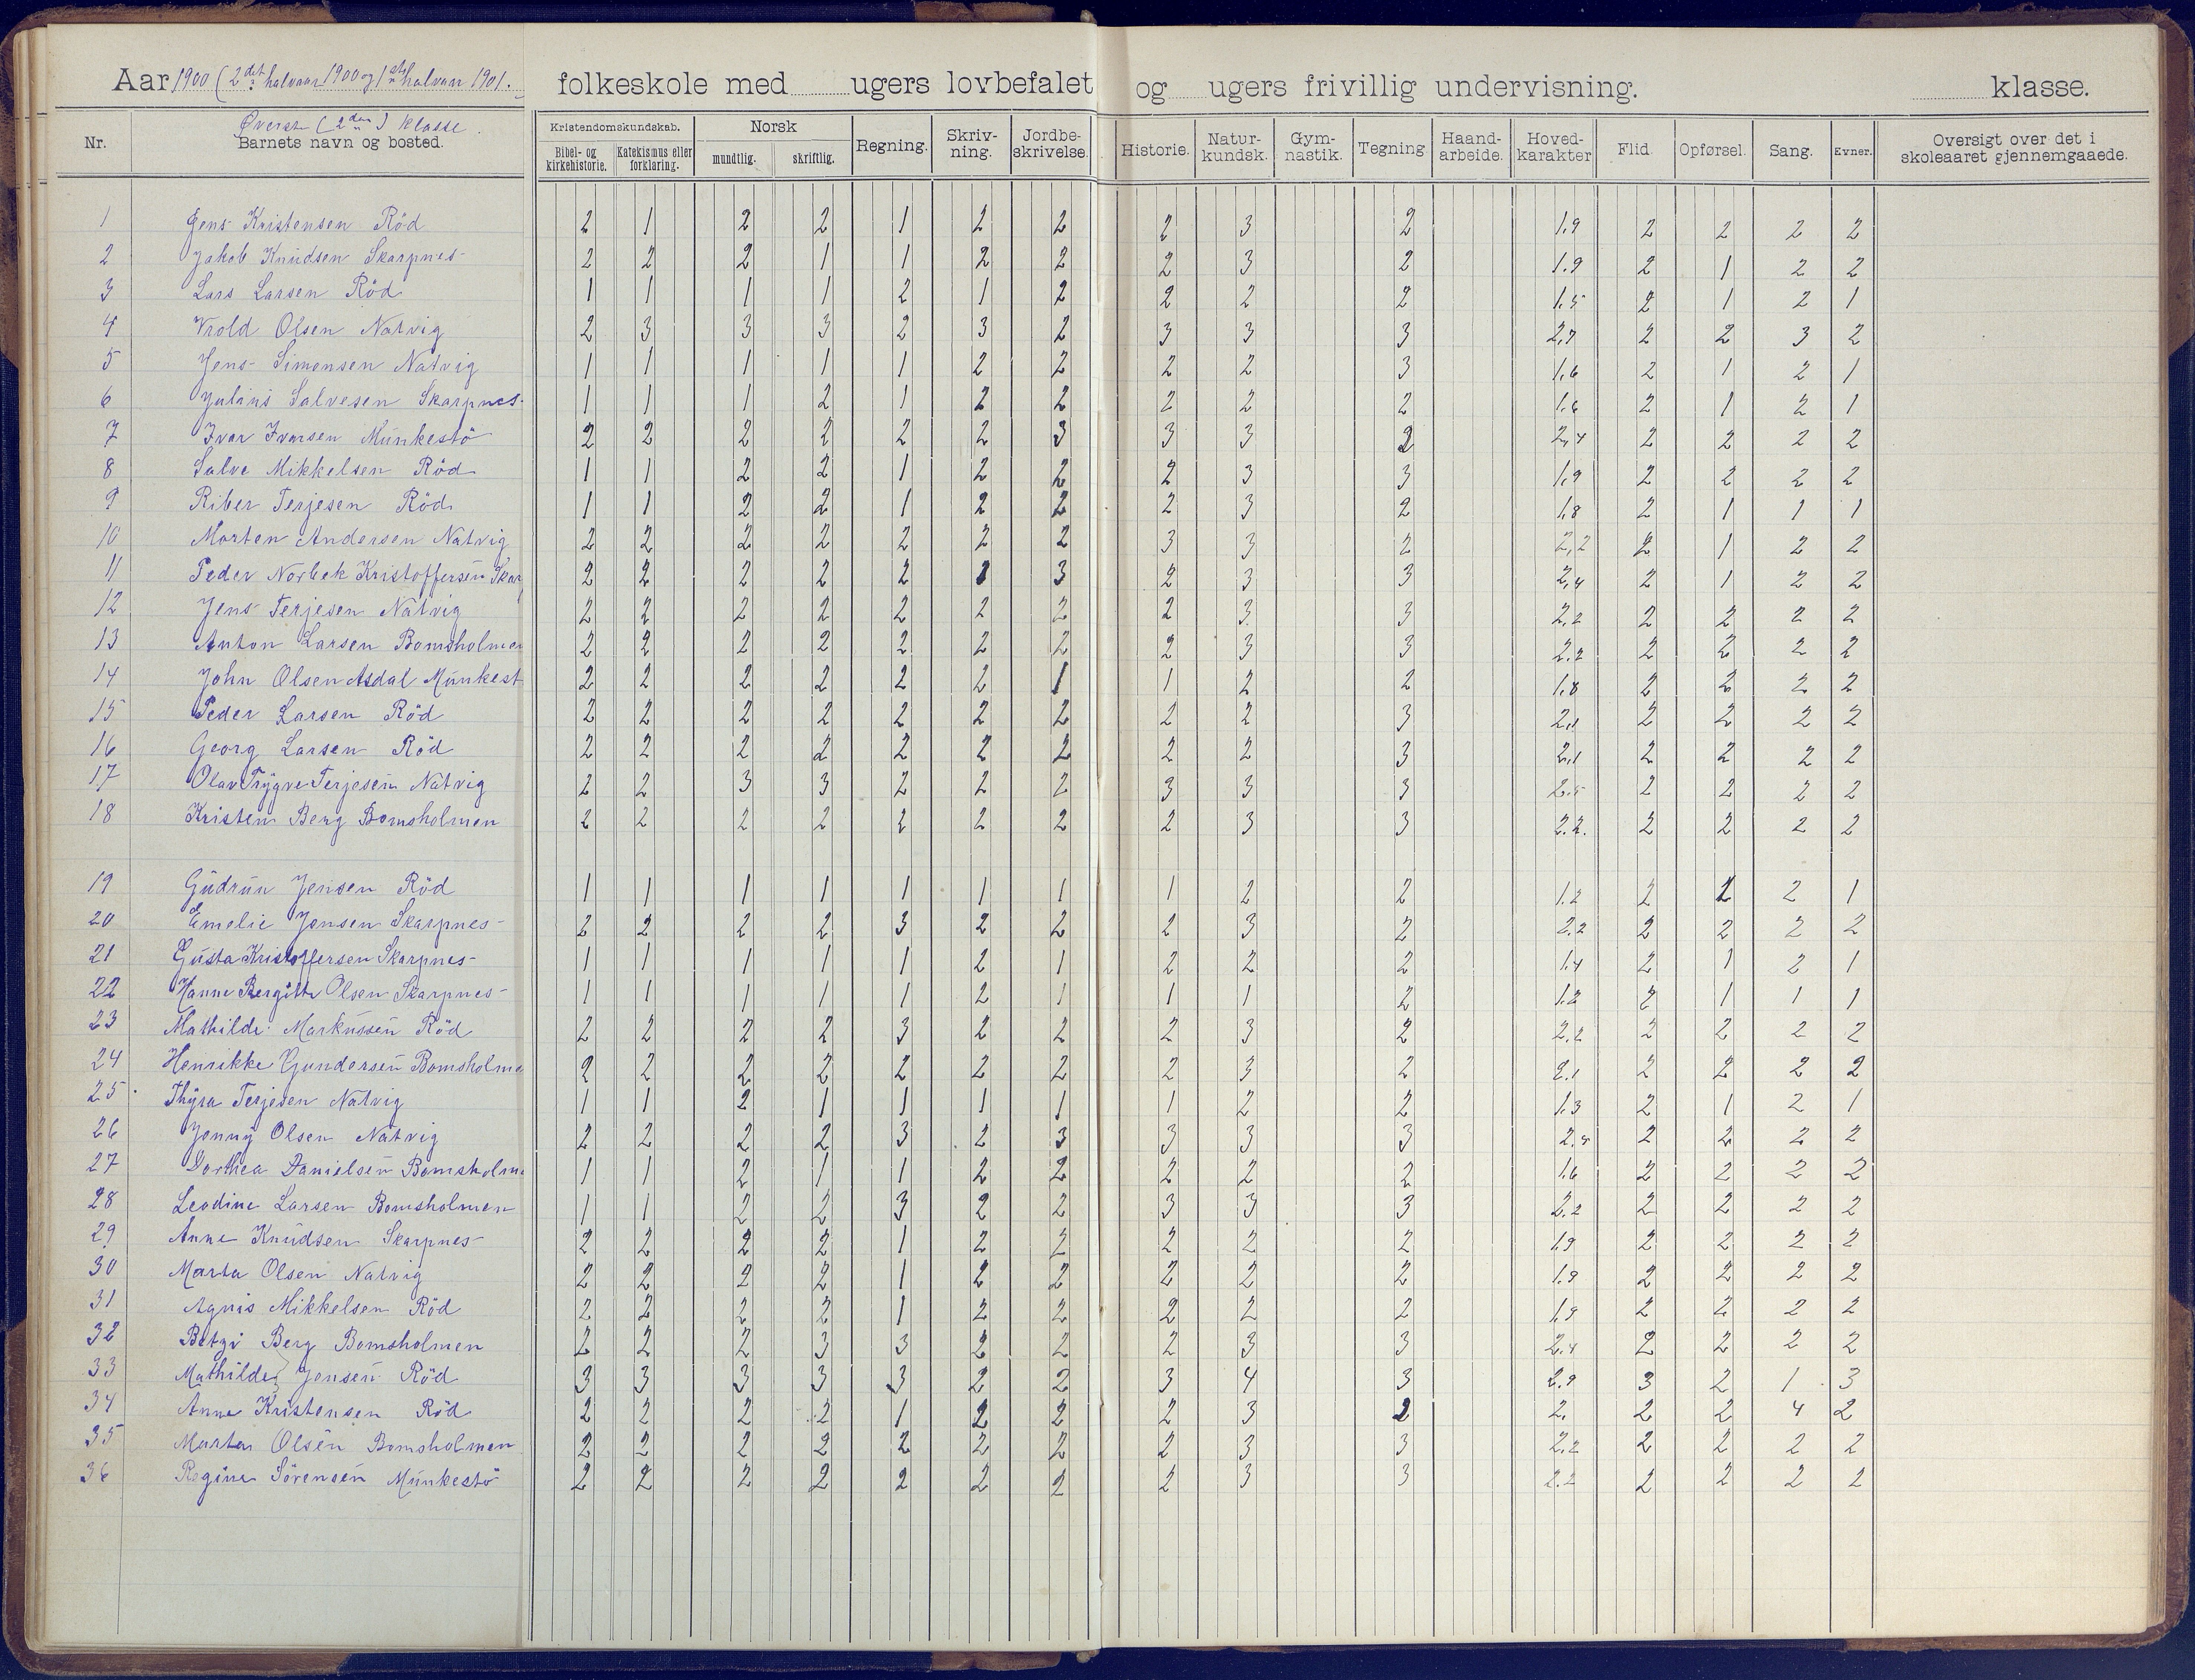 Aar 1900 (2det halvaar 1900 og 1ste halvaar 1901. folkeskole med ugers lovbefalet og ugers frivillig undervisning. klasse.
Øverste (2den) klasse.
Nr. Barnets navn og bosted. Kristendomskundskab. Bibel- og kirkehistorie. Katekismus eller forklaring. Norsk mundtlig. skriftlig. Regning. Skriv-ning. Jordbe-skrivelse. Historie. Natur-kundsk. Gym-nastik. Tegning Haand-arbeide. Hoved-karakter Flid. Opførsel. Sang. Evner. Oversigt over det i skoleaaret gjennemgaaede.
1 Jens Kristensen Röd 2 1 2 2 1 2 2 2 3 2 1,9 2 2 2 2
2 Jakob Knudsen Skarpnes 2 2 2 1 1 2 2 2 3 2 1.9 2 1 2 2
3 Lars Larsen Röd 1 1 1 1 2 1 2 2 2 2 1.5 2 1 2 1
4 Vrold Olsen Natvig 2 3 3 3 2 3 2 3 3 3 2,7 2 2 3 2
5 Jens Simonsen Natvig 1 1 1 1 1 2 2 2 2 3 1,6 2 1 2 1
6 Julius Salvesen Skarpnes 1 1 1 2 1 2 2 2 2 2 1.6 2 1 2 1
7 Ivar Ivarsen Munkestö 2 2 2 2 2 2 3 3 3 2 2,4 2 2 2 2
8 Salve Mikkelsen Röd 1 1 2 2 1 2 2 2 3 3 1,9 2 2 2 2
9 Riber Terjesen Röd 1 1 2 2 1 2 2 2 3 2 1,8 2 1 1 1
10 Morten Andersen Natvig 2 2 2 2 2 2 2 3 3 2 2,2 2 1 2 2
11 Peder Norbek Kristoffersen Skar 2 2 2 2 2 3 2 3 3 2,4 2 1 2 2
12 Jens Terjesen Natvig 2 2 2 2 2 2 2 2 3 3 2.2 2 2 2 2
13 Anton Larsen Bomsholmen 2 2 2 2 2 2 2 2 3 3 2.2 2 2 2 2
14 John Olsen Asdal Munkest 2 2 2 2 2 2 1 1 2 2 1,8 2 2 2 2
15 Peder Larsen Röd 2 2 2 2 2 2 2 2 2 3 2,1 2 2 2 2
16 Georg Larsen Röd 2 2 2 2 2 2 2 2 2 3 2,1 2 2 2 2
17 Olav Trygve Terjesen Natvig 2 2 3 3 2 2 2 3 3 3 2.5 2 2 2 2
18 Kristen Berg Bomsholmen 2 2 2 2 2 2 2 2 3 3 2.2. 2 2 2 2
19 Gudrun Jensen Röd 1 1 1 1 1 1 1 1 2 2 1.2 2 2 2 1
20 Emelie Jensen Skarpnes 2 2 2 2 3 2 2 2 3 2 2.2 2 2 2 2
21 Gusta Kristoffersen Skarpnes 1 1 1 1 1 2 1 2 2 2 1.4 2 1 2 1
22 Hanne Bergitte Olsen Skarpnes 1 1 1 1 1 2 1 1 1 2 1.2 2 1 1 1
23 Mathilde Markussen Röd 2 2 2 2 3 2 2 2 3 2 2.2 2 2 2 2
24 Henrikke Gundersen Bomsholme 2 2 2 2 2 2 2 2 3 2 2.1 2 2 2 2
25 Thyra Terjesen Natvig 1 1 2 1 1 1 1 1 2 2 1.3 2 1 2 1
26 Jenny Olsen Natvig 2 2 2 2 3 2 3 3 3 3 2.5 2 2 2 2
27 Dorthea Danielsen Bomsholme 1 1 2 1 1 2 2 2 2 2 1.6 2 2 2 2
28 Leodine Larsen Bomsholmen 1 1 2 2 3 2 2 3 3 3 2.2 2 2 2 2
29 Anne Knudsen Skarpnes 2 2 2 2 1 2 2 2 2 2 1.9 2 2 2 2
30 Marta Olsen Natvig 2 2 2 2 1 2 2 2 2 2 1.9 2 2 2 2
31 Agnis Mikkelsen Röd 2 2 2 2 1 2 2 2 2 2 1.9 2 2 2 2
32 Betzi Berg Bomsholmen 2 2 2 3 3 2 2 2 3 3 2.4 2 2 2 2
33 Mathilde Jensen Röd 3 3 3 3 3 2 2 3 4 3 2.9 3 2 1 3
34 Anne Kristensen Röd 2 2 2 2 1 2 2 2 3 2 2. 2 2 4 2
35 Marta Olsen Bomsholmen 2 2 2 2 2 2 2 2 3 3 2,2 2 2 2 2
36 Regine Sörensen Munkestö 2 2 2 2 2 2 2 2 3 3 2.2 2 2 2 2